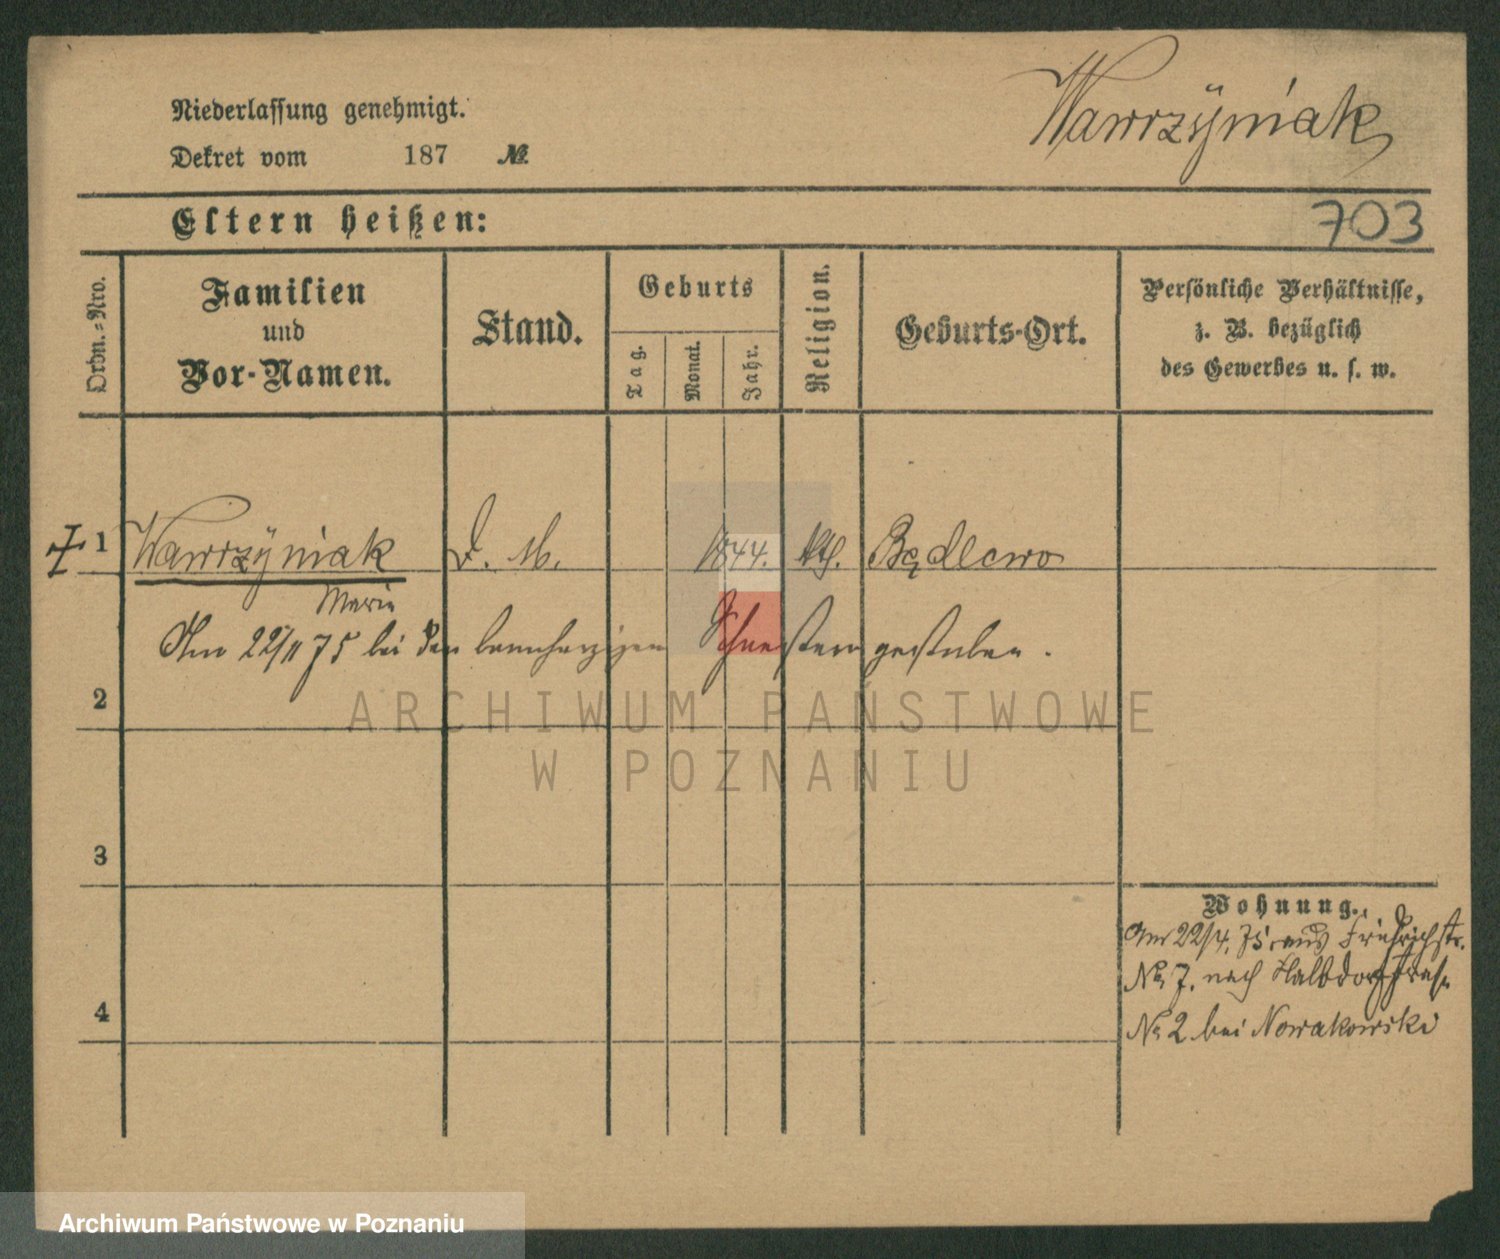 Niederlassung genehmigt.
Dekret vom 187 №
Wawrzÿniak
Eltern heißen:
703
Ordn.-Nro.
Familien
und
Vor-Namen.
Stand.
Geburts
Tag.
Monat.
Jahr.
Religion.
Geburts-Ort.
Persönliche Verhältnisse,
z. B. bezüglich
des Gewerbes u. s. w.
1 Wawrzÿniak D. M. 1844. kth. Będlewo
Marie
Am 22/11 75 bei den barmherzigen Schwestern gestorben.
2
ARCHIWUM PAŃSTWOWE
W POZNANIU
3
Wohnung.
Am 22/4. 75. aus Friedrichstr.
No 7. nach Halbdorfstraße
4
No 2 bei Nowakowski
Archiwum Państwowe w Poznaniu